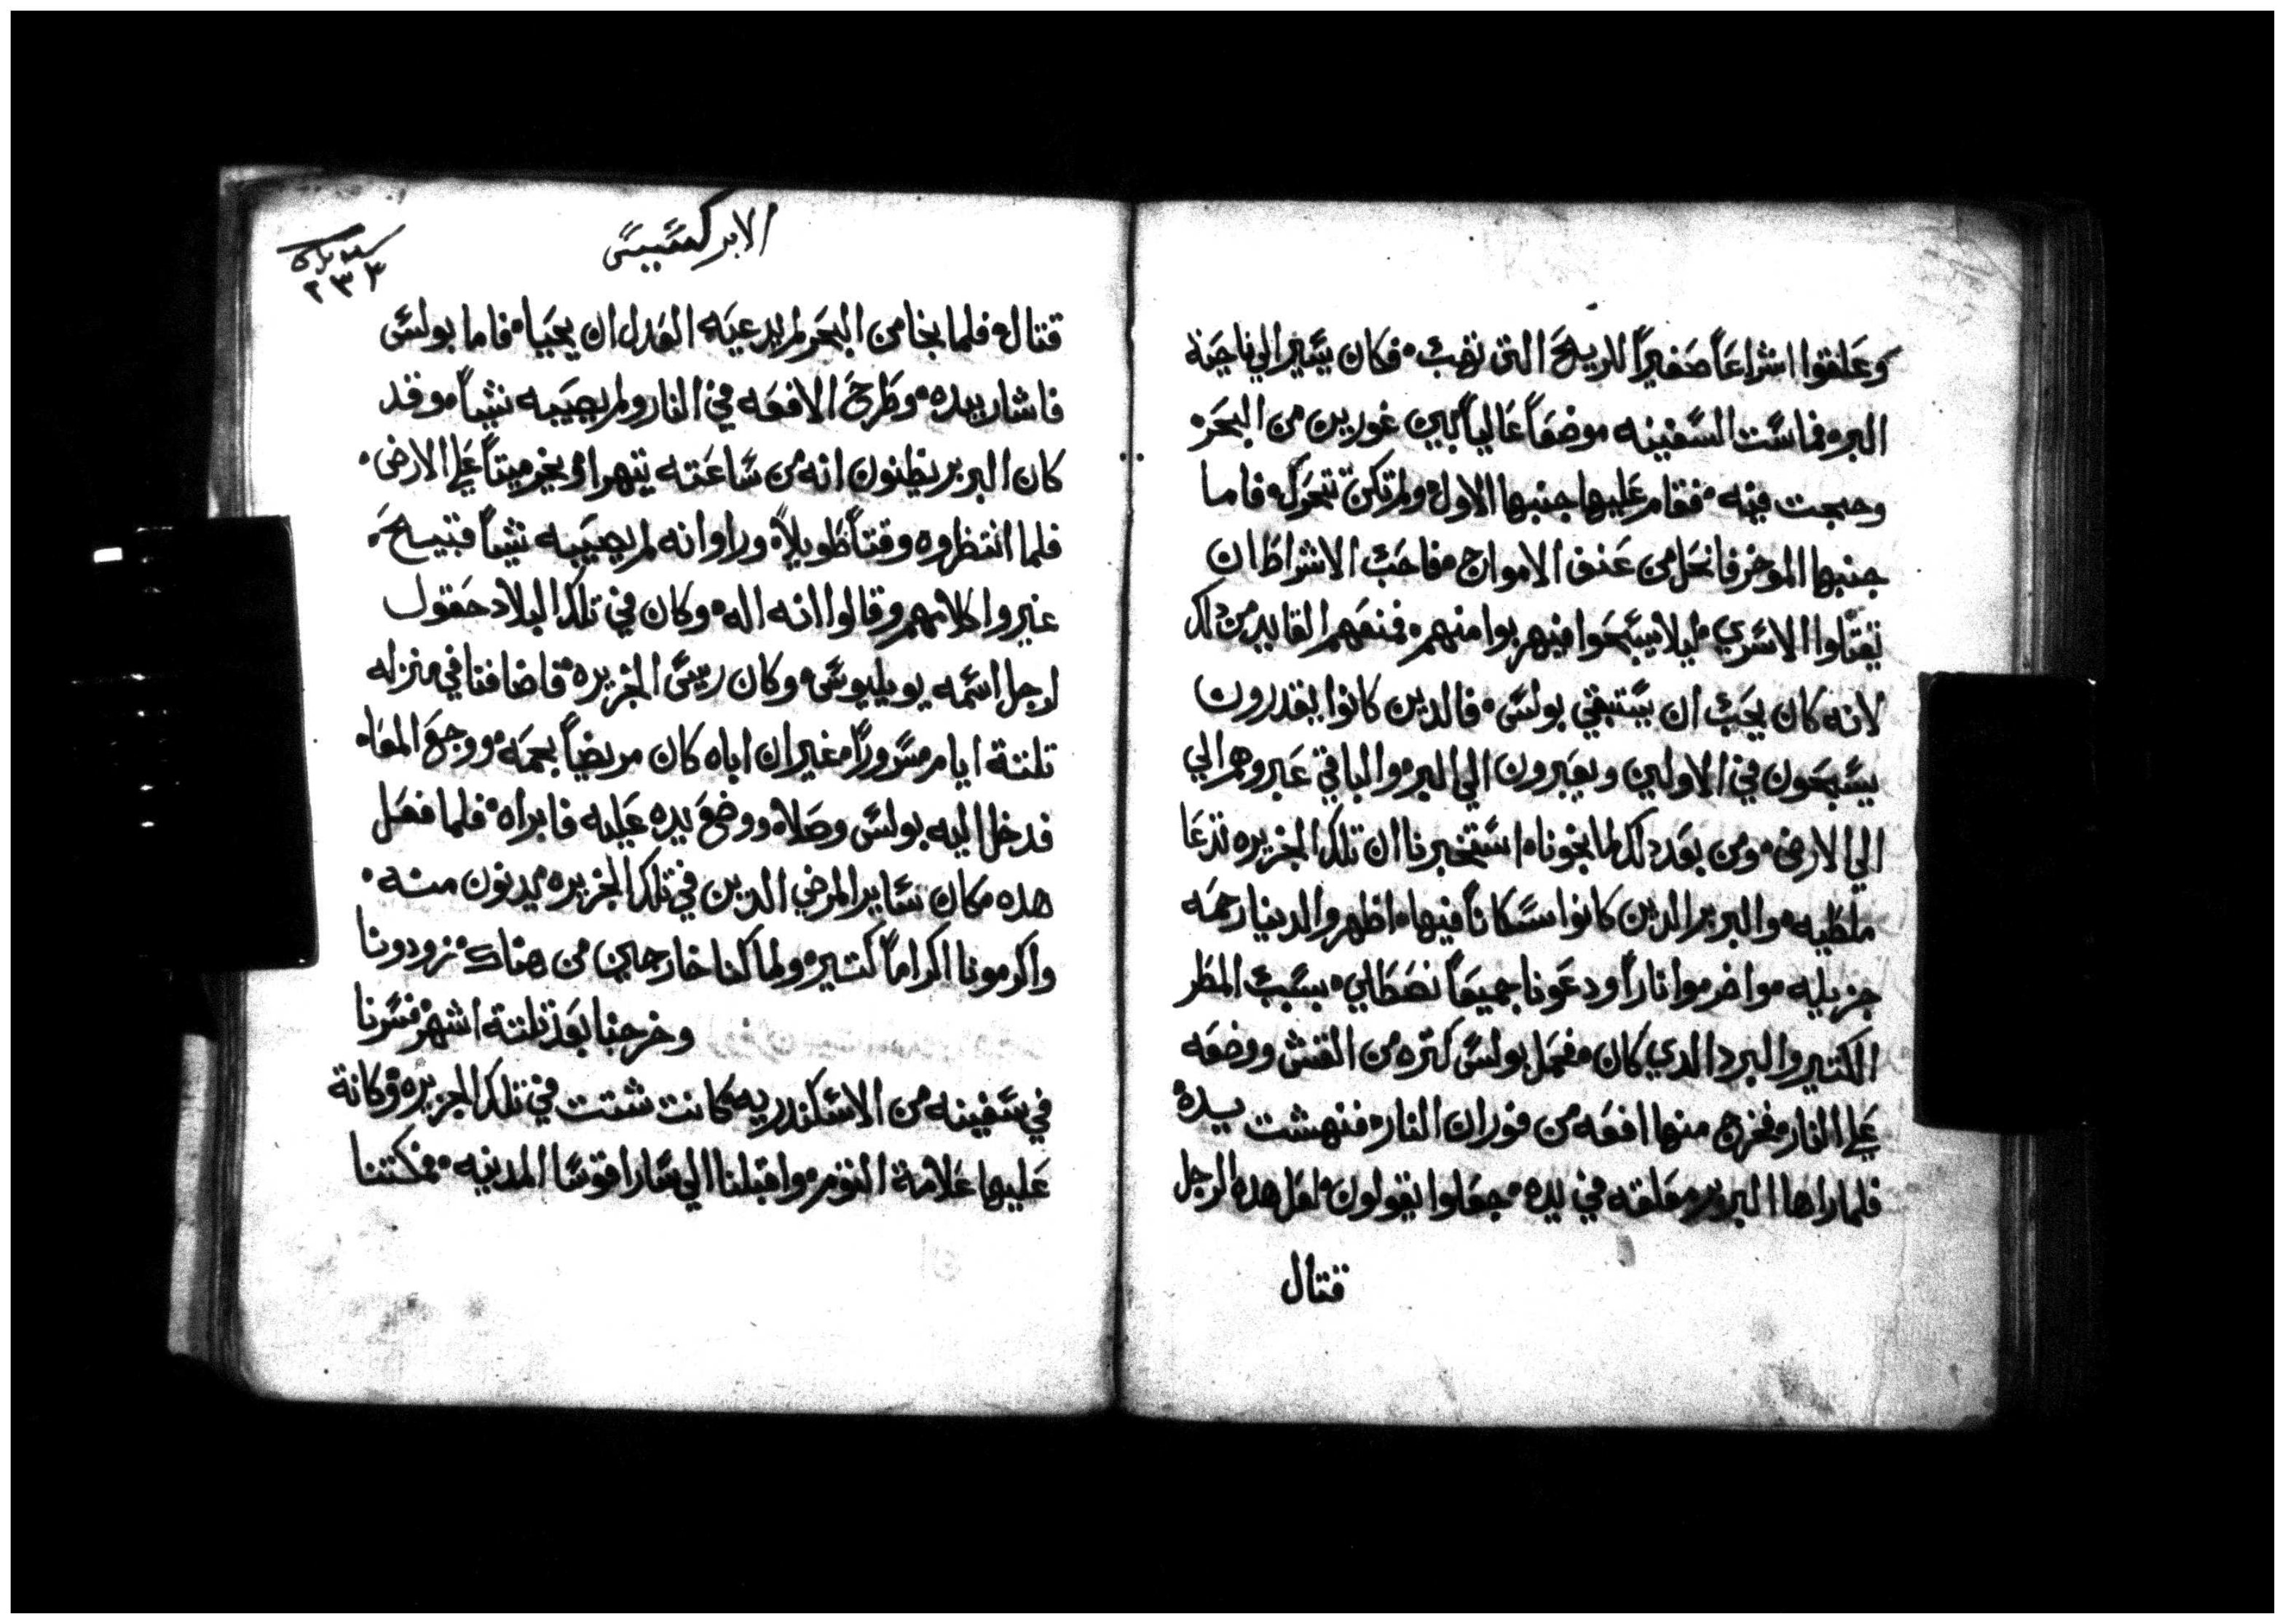 وعلقوا اشراعاً صغيراً للريح التي تهب۰ فكان يسير الي ناحية
البر۰ فماست السفينه موضعاً عالياً بين غورين من البحر۰
وحجت فيه۰ فقام عليها جنبها الاول۰ ولم تكن تتحرك۰ فاما
جنبها الموخر فانحل من عنف الامواج۰ فاحب الاشراط ان
يقتلوا الاسري۰ ليلا يسبحوا فيهربوا منهم۰ فمنعهم القايد من دلك
لانه كان يحب ان يستبقي بولس۰ فالدين كانوا يقدرون
يسبحون في الاولين ويعبرون الي البر۰ والباقي عبروهم الي
الي الارض۰ ومن بعد دلك لما نجونا۰ استخبرنا ان تلك الجزيره تدعا
ملطيه۰ والبربر الدين كانوا سكاناً فيها۰ اظهروا لدينا رحمه
جزيله۰ واضرموا ناراً ودعونا جميعاً نصطلي۰ بسبب المطر
الكتير والبرد الدي كان۰ فحمل بولس كتره من القش ووضعه
علي النار۰ فخرج منها افعه من فوران النار۰ فنهشت يده
فلما راها البربر معلقه في يده۰ جعلوا يقولون۰ لعل هده الرجل
قتال
الابركسيس
٢٣٣
قتال۰ فلما نجا من البحر لم يدعيه العدل ان يحيا۰ فاما بولس
فاشار بيده۰ وطرح الافعه في النار ولم يصيبه شيا۰ وقد
كان البربر يظنون انه من ساعته يتهرا۰ ويخر ميتاً علي الارض۰
فلما انتظروه وقتاً طويلاً۰ وراوا انه لم يصيبه شياً قبيح۰
غيروا كلامهم وقالوا انه اله۰ وكان في تلك البلاد حقول
لرجل اسمه يوبليوس۰ وكان ريس الجزيره۰ فاضافنا في منزله
تلتة ايام مسروراً۰ غير ان اباه كان مريضاً بحمه۰ ووجع المعاه
فدخل اليه بولس وصلا۰ ووضع يده عليه فابراه۰ فلما فعل
هده۰ كان ساير المرضي الدين في تلك الجزيره۰ يدنون منه۰
واكرمونا اكراماً كتير۰ ولما كنا خارجين من هناك۰ زودونا
وخرجنا بعد تلتة اشهر۰ فسرنا
في سفينه من الاسكندريه۰ كانت شتت في تلك الجزيره۰ وكانة
عليها علامة التوم۰ واقبلنا الي ساراقوسا المدينه۰ فمكتنا